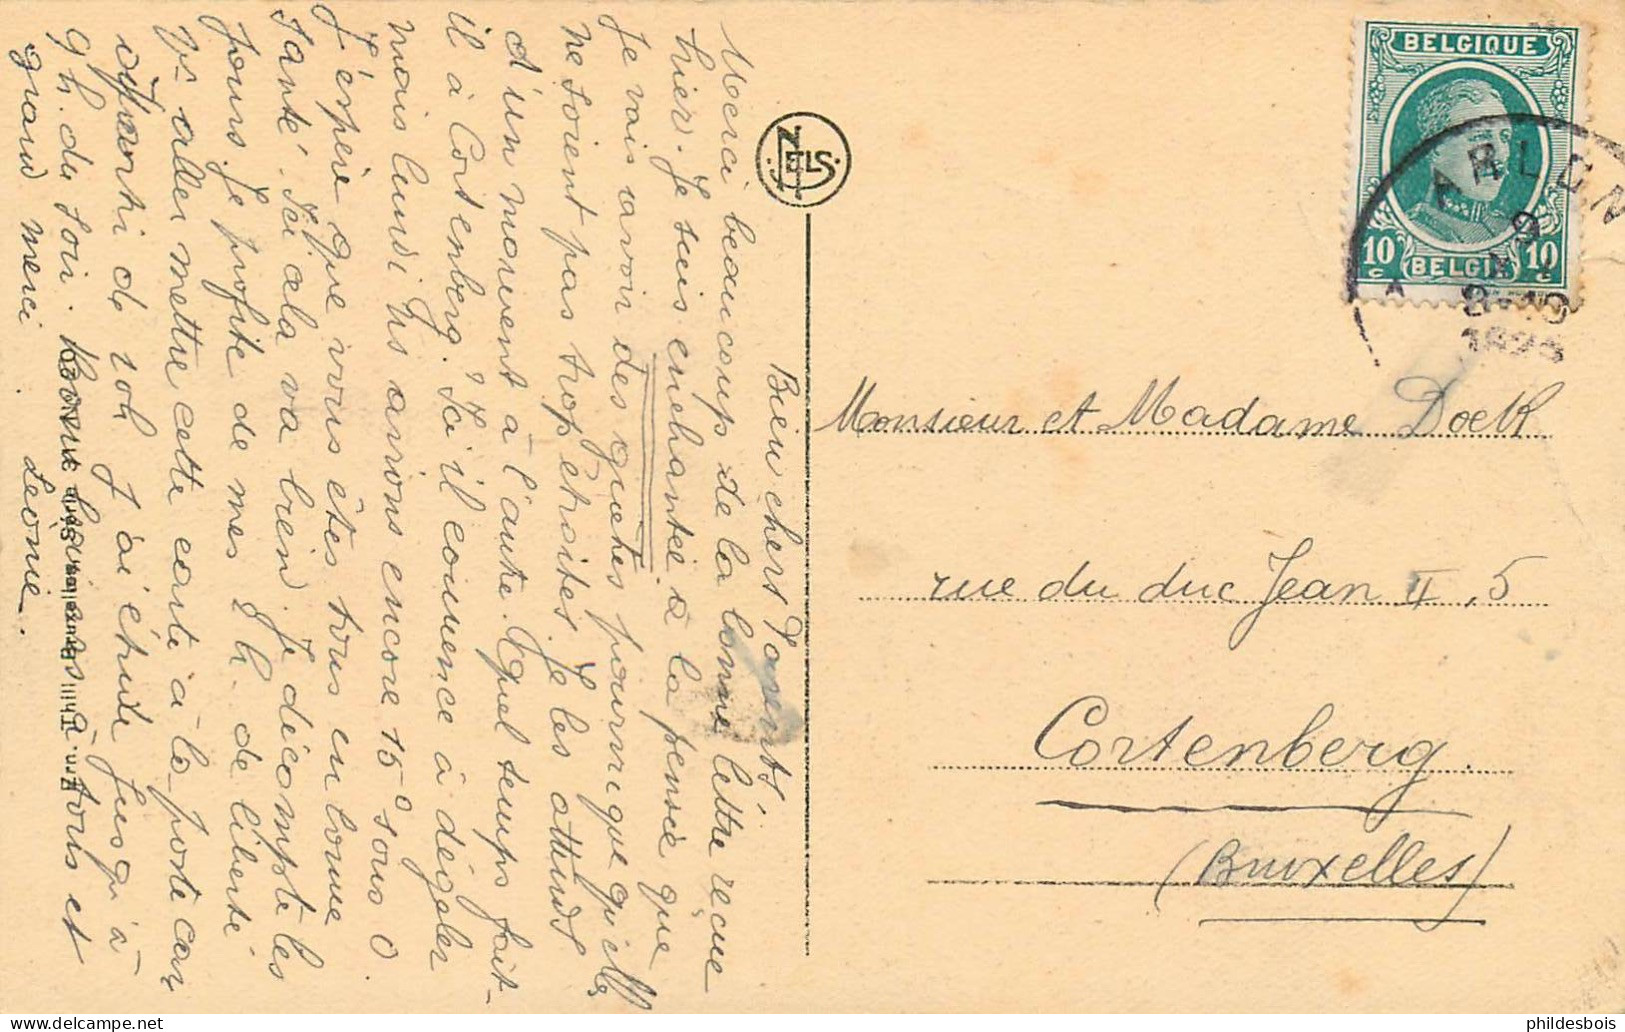 Bien chers Parents,
Merci beaucoup de la bonne lettre reçue
hier. Je suis enchantée à la pensée que
Je vais avoir des guêtres pourvu que qu'elles
ne soient pas trop étroites. Je les attends
d'un moment à l'autre. Quel temps fait-
il à Cortenberg? Ici il commence à dégeler
mais lundi Ns avions encore 15° sous 0.
J'espère que vous êtes tous en bonne
santé. Ici cela va bien. Je décompte les
jours. Je profite de mes 2 h. de liberté
pr aller mettre cette carte à la poste car
de 10h J'ai étude jusqu'à
9h. du soir. Bonne à tous et
grand merci. Léonie.
NELS
BELGIQUE
10 c
10 c
BELGIË
ARLON
9
8-10
Monsieur et Madame Doek
rue du duc Jean II, 5
Cortenberg
(Bruxelles)
Ern. Thill, Bruxelles
phildesbois